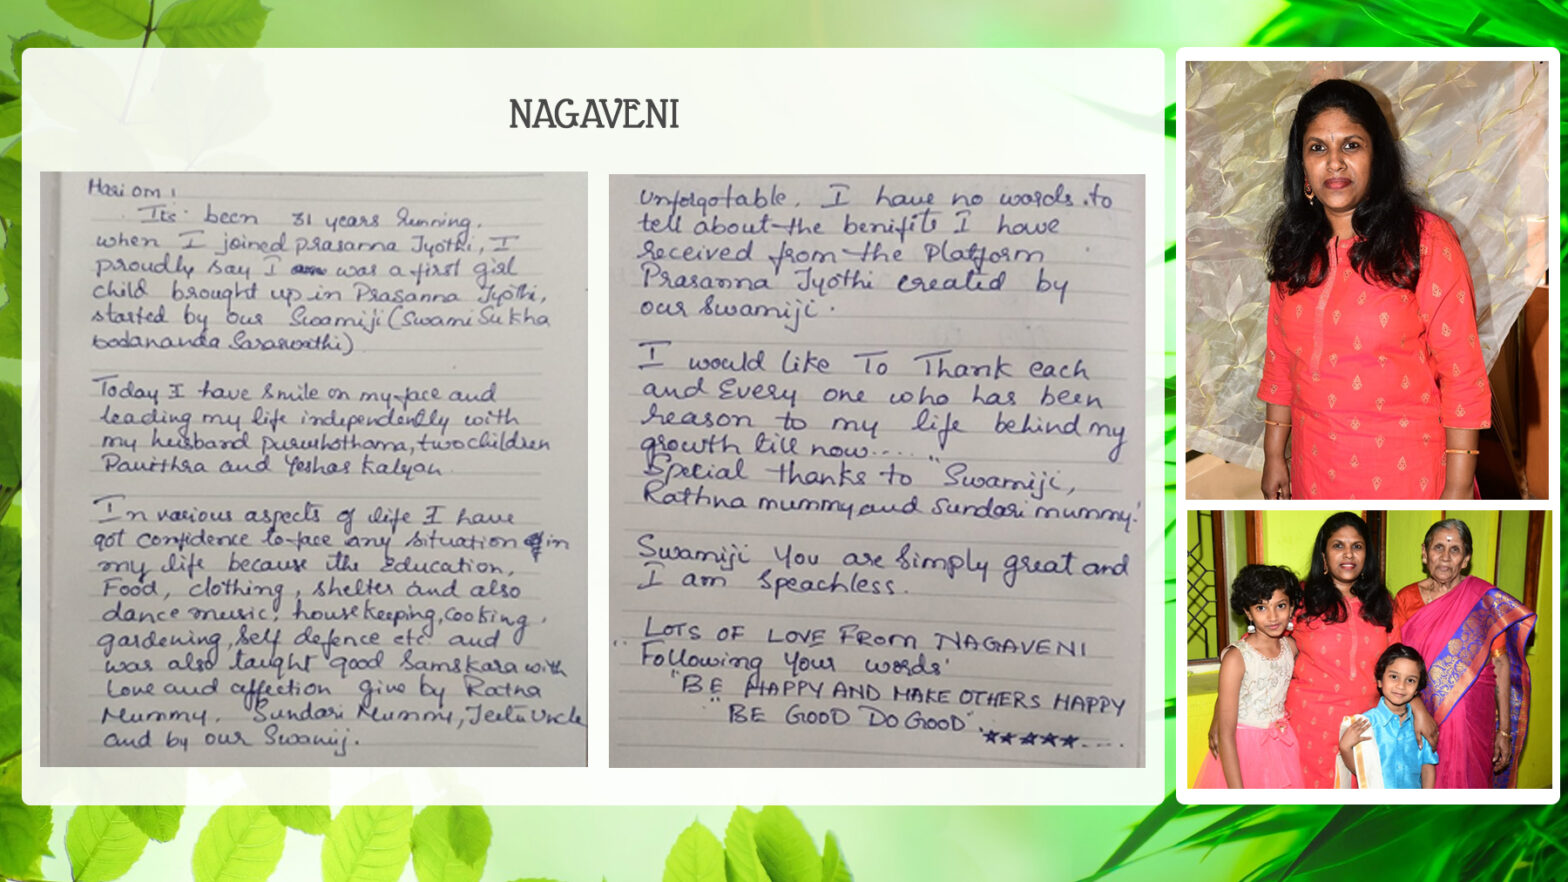 NAGAVENI
Hari om!
Its been 31 years running,
when I joined prasanna Jyothi, I
proudly say I was a first girl
child brought up in Prasanna Jyothi,
started by our Swamiji (Swami Sukha
bodananda Saraswathi)
Today I have smile on my face and
leading my life independently with
my husband purushothama, two children
Pavithra and Yeshas Kalyan.
In various aspects of life I have
got confidence to face any situation in
my life because the Education,
Food, clothing, shelter and also
dance music, house keeping, cooking,
gardening, self defence etc and
was also taught good Samskara with
Love and affection give by Ratna
Mummy, Sundari Mummy, Jeetu Uncle
and by our Swamij.
Unforgotable. I have no words to
tell about the benifits I have
received from the Platform
Prasanna Jyothi created by
our Swamiji.
I would like To Thank each
and Every one who has been
reason to my life behind my
growth till now....
Special thanks to "Swamiji,
Rathna mummy and Sundari mummy."
Swamiji You are simply great and
I am Speachless.
LOTS OF LOVE FROM NAGAVENI
Following your words'
"BE HAPPY AND MAKE OTHERS HAPPY
"BE GOOD DO GOOD"